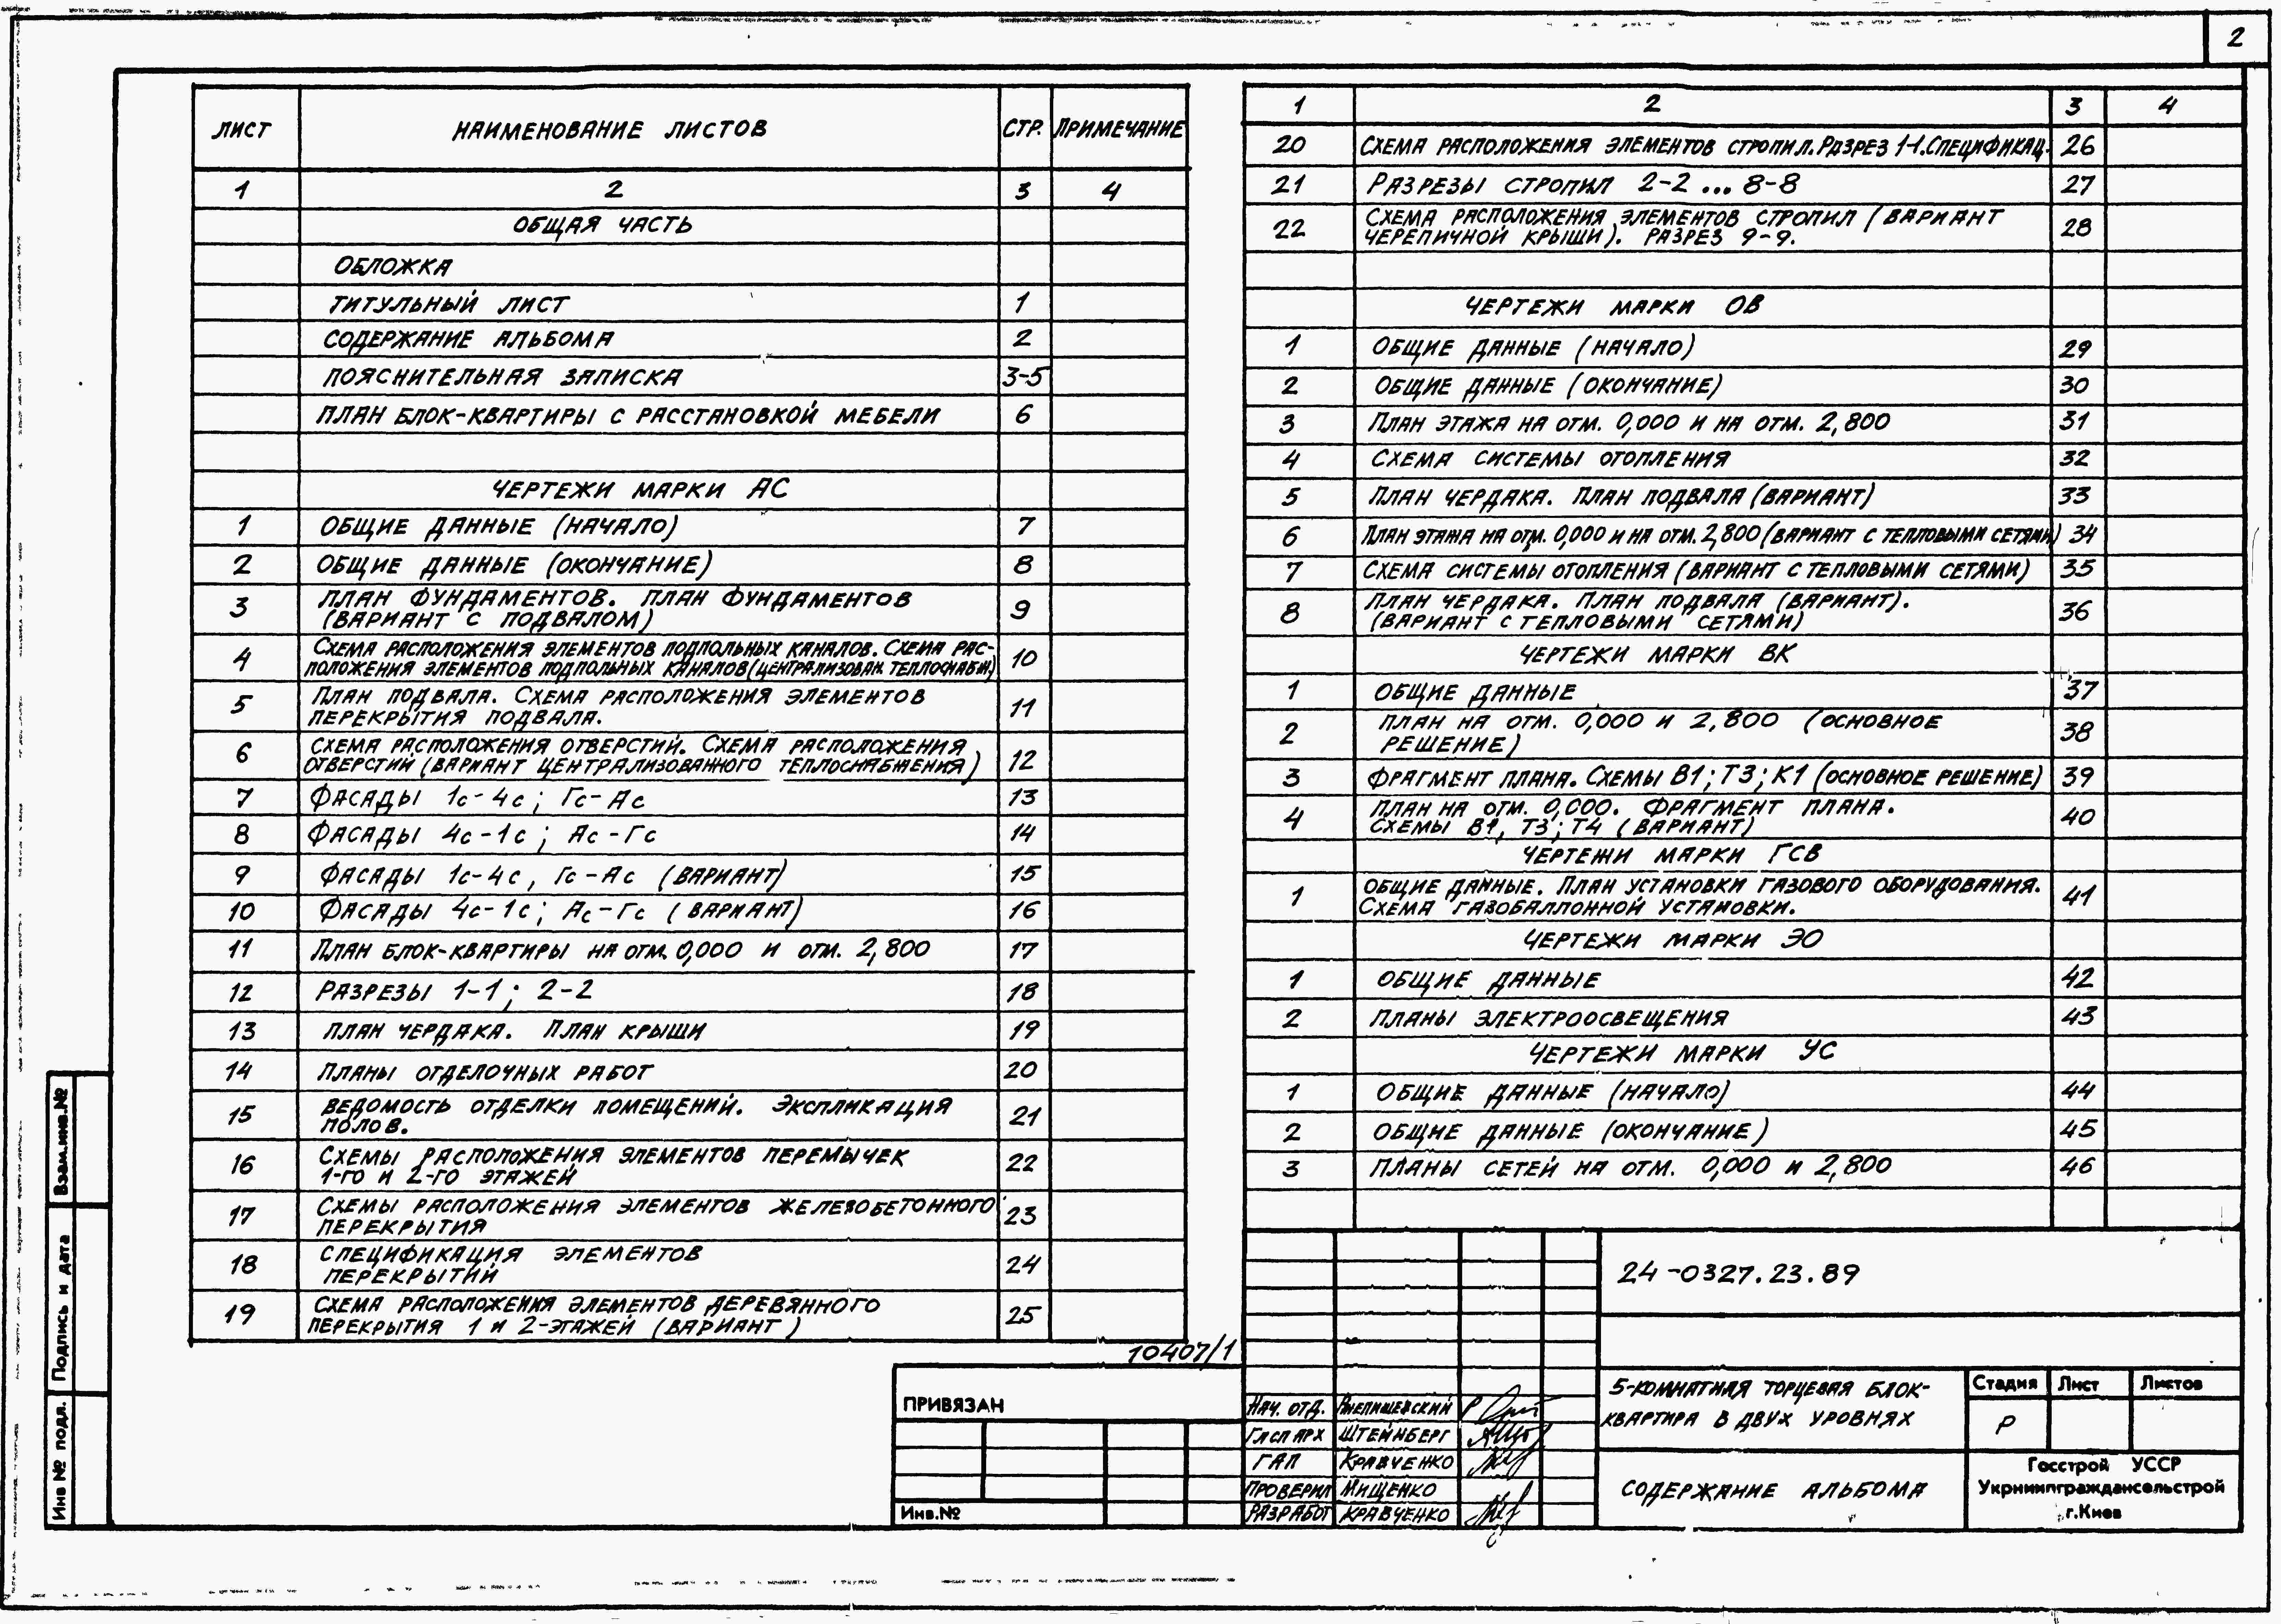 2
ЛИСТ НАИМЕНОВАНИЕ ЛИСТОВ СТР. ПРИМЕЧАНИЕ
1 2 3 4
ОБЩАЯ ЧАСТЬ
ОБЛОЖКА
ТИТУЛЬНЫЙ ЛИСТ 1
СОДЕРЖАНИЕ АЛЬБОМА 2
ПОЯСНИТЕЛЬНАЯ ЗАПИСКА 3-5
ПЛАН БЛОК-КВАРТИРЫ С РАССТАНОВКОЙ МЕБЕЛИ 6
ЧЕРТЕЖИ МАРКИ АС
1 ОБЩИЕ ДАННЫЕ (НАЧАЛО) 7
2 ОБЩИЕ ДАННЫЕ (ОКОНЧАНИЕ) 8
3 ПЛАН ФУНДАМЕНТОВ. ПЛАН ФУНДАМЕНТОВ
(ВАРИАНТ С ПОДВАЛОМ) 9
4 СХЕМА РАСПОЛОЖЕНИЯ ЭЛЕМЕНТОВ ПОДПОЛЬНЫХ КАНАЛОВ. СХЕМА РАС-
ПОЛОЖЕНИЯ ЭЛЕМЕНТОВ ПОДПОЛЬНЫХ КАНАЛОВ (ЦЕНТРАЛИЗОВАН. ТЕПЛОСНАБЖ) 10
5 ПЛАН ПОДВАЛА. СХЕМА РАСПОЛОЖЕНИЯ ЭЛЕМЕНТОВ
ПЕРЕКРЫТИЯ ПОДВАЛА. 11
6 СХЕМА РАСПОЛОЖЕНИЯ ОТВЕРСТИЙ. СХЕМА РАСПОЛОЖЕНИЯ
ОТВЕРСТИЙ (ВАРИАНТ ЦЕНТРАЛИЗОВАННОГО ТЕПЛОСНАБЖЕНИЯ) 12
7 ФАСАДЫ 1с-4с; Гс-Ас 13
8 ФАСАДЫ 4с-1с; Ас-Гс 14
9 ФАСАДЫ 1с-4с, Гс-Ас (ВАРИАНТ) 15
10 ФАСАДЫ 4с-1с; Ас-Гс (ВАРИАНТ) 16
11 ПЛАН БЛОК-КВАРТИРЫ НА ОТМ. 0,000 И ОТМ. 2,800 17
12 РАЗРЕЗЫ 1-1; 2-2 18
13 ПЛАН ЧЕРДАКА. ПЛАН КРЫШИ 19
14 ПЛАНЫ ОТДЕЛОЧНЫХ РАБОТ 20
15 ВЕДОМОСТЬ ОТДЕЛКИ ПОМЕЩЕНИЙ. ЭКСПЛИКАЦИЯ
ПОЛОВ. 21
16 СХЕМЫ РАСПОЛОЖЕНИЯ ЭЛЕМЕНТОВ ПЕРЕМЫЧЕК
1-ГО И 2-ГО ЭТАЖЕЙ 22
17 СХЕМЫ РАСПОЛОЖЕНИЯ ЭЛЕМЕНТОВ ЖЕЛЕЗОБЕТОННОГО
ПЕРЕКРЫТИЯ 23
18 СПЕЦИФИКАЦИЯ ЭЛЕМЕНТОВ
ПЕРЕКРЫТИЙ 24
19 СХЕМА РАСПОЛОЖЕНИЯ ЭЛЕМЕНТОВ ДЕРЕВЯННОГО
ПЕРЕКРЫТИЯ 1 И 2-ЭТАЖЕЙ (ВАРИАНТ) 25
1 2 3 4
20 СХЕМА РАСПОЛОЖЕНИЯ ЭЛЕМЕНТОВ СТРОПИЛ. РАЗРЕЗ 1-1. СПЕЦИФИКАЦ. 26
21 РАЗРЕЗЫ СТРОПИЛ 2-2 ... 8-8 27
22 СХЕМА РАСПОЛОЖЕНИЯ ЭЛЕМЕНТОВ СТРОПИЛ (ВАРИАНТ
ЧЕРЕПИЧНОЙ КРЫШИ). РАЗРЕЗ 9-9. 28
ЧЕРТЕЖИ МАРКИ ОВ
1 ОБЩИЕ ДАННЫЕ (НАЧАЛО) 29
2 ОБЩИЕ ДАННЫЕ (ОКОНЧАНИЕ) 30
3 ПЛАН ЭТАЖА НА ОТМ. 0,000 И НА ОТМ. 2,800 31
4 СХЕМА СИСТЕМЫ ОТОПЛЕНИЯ 32
5 ПЛАН ЧЕРДАКА. ПЛАН ПОДВАЛА (ВАРИАНТ) 33
6 ПЛАН ЭТАЖА НА ОТМ. 0,000 И НА ОТМ. 2,800 (ВАРИАНТ С ТЕПЛОВЫМИ СЕТЯМИ) 34
7 СХЕМА СИСТЕМЫ ОТОПЛЕНИЯ (ВАРИАНТ С ТЕПЛОВЫМИ СЕТЯМИ) 35
8 ПЛАН ЧЕРДАКА. ПЛАН ПОДВАЛА (ВАРИАНТ).
(ВАРИАНТ С ТЕПЛОВЫМИ СЕТЯМИ) 36
ЧЕРТЕЖИ МАРКИ ВК
1 ОБЩИЕ ДАННЫЕ 37
2 ПЛАН НА ОТМ. 0,000 И 2,800 (ОСНОВНОЕ
РЕШЕНИЕ) 38
3 ФРАГМЕНТ ПЛАНА. СХЕМЫ В1; Т3; К1 (ОСНОВНОЕ РЕШЕНИЕ) 39
4 ПЛАН НА ОТМ. 0,000. ФРАГМЕНТ ПЛАНА.
СХЕМЫ В1, Т3; Т4 (ВАРИАНТ) 40
ЧЕРТЕЖИ МАРКИ ГСВ
1 ОБЩИЕ ДАННЫЕ. ПЛАН УСТАНОВКИ ГАЗОВОГО ОБОРУДОВАНИЯ.
СХЕМА ГАЗОБАЛЛОННОЙ УСТАНОВКИ. 41
ЧЕРТЕЖИ МАРКИ ЭО
1 ОБЩИЕ ДАННЫЕ 42
2 ПЛАНЫ ЭЛЕКТРООСВЕЩЕНИЯ 43
ЧЕРТЕЖИ МАРКИ УС
1 ОБЩИЕ ДАННЫЕ (НАЧАЛО) 44
2 ОБЩИЕ ДАННЫЕ (ОКОНЧАНИЕ) 45
3 ПЛАНЫ СЕТЕЙ НА ОТМ. 0,000 И 2,800 46
10407/1
ПРИВЯЗАН
Инв.№
24-0327.23.89
НАЧ. ОТД.
ГЛ СП АРХ ШТЕЙНБЕРГ
ГАП КРАВЧЕНКО
ПРОВЕРИЛ МИЩЕНКО
РАЗРАБОТ КРАВЧЕНКО
5-КОМНАТНАЯ ТОРЦЕВАЯ БЛОК-
КВАРТИРА В ДВУХ УРОВНЯХ
Стадия Лист Листов
Р
СОДЕРЖАНИЕ АЛЬБОМА
Госстрой УССР
Укрниипграждансельстрой
г.Киев
Взам.инв.№
Подпись и дата
Инв № подл.